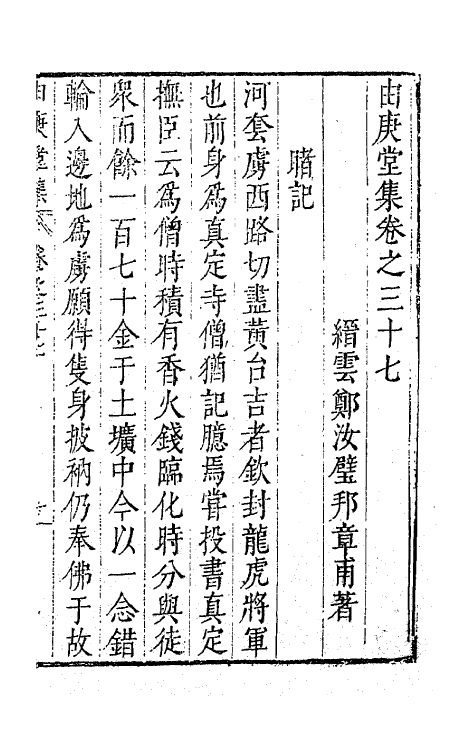 由庚堂集卷之三十七
縉雲鄭汝璧邦章甫著
睹記
河套虜西路切盡黃台吉者欽封龍虎將軍
也前身為真定寺僧猶記臆焉嘗投書真定
撫臣云為僧時積有香火錢臨化時分與徒
衆而餘一百七十金于土壙中今以一念錯
輪入邊地為虜願得隻身披衲仍奉佛于故
由庚堂集 卷之三十七